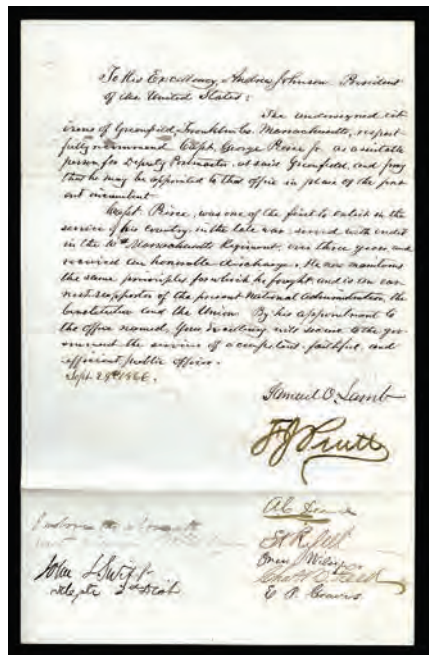 To His Excellency Andrew Johnson President
of the United States:
The undersigned cit
izens of Greenfield, Franklin Co. Massachusetts, respect
fully recommend Capt. George Pierce Jr. as a suitable
person for Deputy Postmaster, at said Greenfield, and pray
that he may be appointed to that office in place of the pres
ent incumbent.
Capt. Pierce, was one of the first to enlist in the
service of his country, in the late war, served with credit
in the 10th Massachusetts Regiment, over three years, and
received an honorable discharge. He now maintains
the same principles for which he fought and is an ear
nest supporter of the present National Administration, the
Constitution and the Union. By his appointment to
the office named, Your Excellency will secure to the gov
ernment the services of a competent, faithful, and
efficient public officer.
Sept. 29th 1866.
Samuel O. Lamb
I endorse the
John L Swift
2d Dist
E. P. Graves